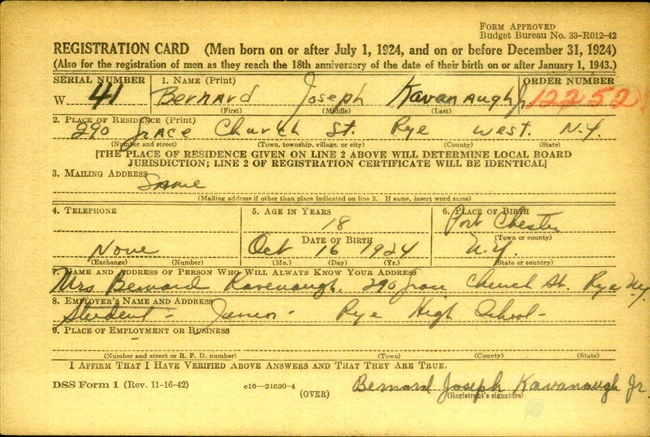 FORM APPROVED
Budget Bureau No. 33-R012-42
REGISTRATION CARD (Men born on or after July 1, 1924, and on or before December 31, 1924)
(Also for the registration of men as they reach the 18th anniversary of the date of their birth on or after January 1, 1943.)
SERIAL NUMBER 1. NAME (Print) ORDER NUMBER
W 41 Bernard Joseph Kavanaugh Jr. 12252
(First) (Middle) (Last)
2. PLACE OF RESIDENCE (Print)
290 Grace Church St. Rye West. N.Y.
(Number and street) (Town, township, village, or city) (County) (State)
[THE PLACE OF RESIDENCE GIVEN ON LINE 2 ABOVE WILL DETERMINE LOCAL BOARD
JURISDICTION; LINE 2 OF REGISTRATION CERTIFICATE WILL BE IDENTICAL]
3. MAILING ADDRESS
Same
(Mailing address if other than place indicated on line 2. If same, insert word same)
4. TELEPHONE 5. AGE IN YEARS 6. PLACE OF BIRTH
18 Port Chester
DATE OF BIRTH (Town or county)
None Oct 16 1924 N.Y.
(Exchange) (Number) (Mo.) (Day) (Yr.) (State or country)
7. NAME AND ADDRESS OF PERSON WHO WILL ALWAYS KNOW YOUR ADDRESS
Mrs. Bernard Kavanaugh. 290 Grace Church St. Rye N.Y.
8. EMPLOYER'S NAME AND ADDRESS
Student - Junior - Rye High School -
9. PLACE OF EMPLOYMENT OR BUSINESS
(Number and street or R. F. D. number) (Town) (County) (State)
I AFFIRM THAT I HAVE VERIFIED ABOVE ANSWERS AND THAT THEY ARE TRUE.
DSS Form 1 (Rev. 11-16-42) c16-21630-4 Bernard Joseph Kavanaugh Jr.
(OVER) (Registrant's signature)